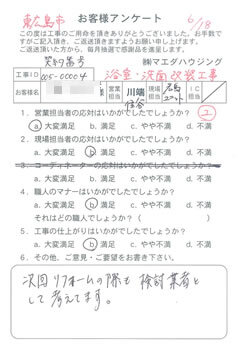 東広島市
お客様アンケート
6/18
この度は工事のご用命を頂きありがとうございました。お手数で
すがご記入頂き、ご返送頂きますようお願い申し上げます。
ご返送頂いた方から、毎月抽選で感謝品を進呈します。
契約番号 ㈱マエダハウジング
工事ID 005-00004 浴室・洗面改装工事
お客様名 営業担当 川端 現場担当 IC担当
1. 営業担当者の応対はいかがでしたでしょうか?
a 大変満足 b 満足 c やや不満 d 不満
2. 現場担当者の応対はいかがでしたでしょうか?
a 大変満足 b 満足 c やや不満 d 不満
3. コーディネーターの応対はいかがでしたでしょうか?
a 大変満足 b 満足 c やや不満 d 不満
4. 職人のマナーはいかがでしたでしょうか?
a 大変満足 b 満足 c やや不満 d 不満
それはどの職人でしょうか? ( )
5. 工事の仕上がりはいかがでしたでしょうか?
a 大変満足 b 満足 c やや不満 d 不満
6. その他、ご意見・ご要望をお書き下さい。
次回リフォームの際も検討業者と
して考えてます。